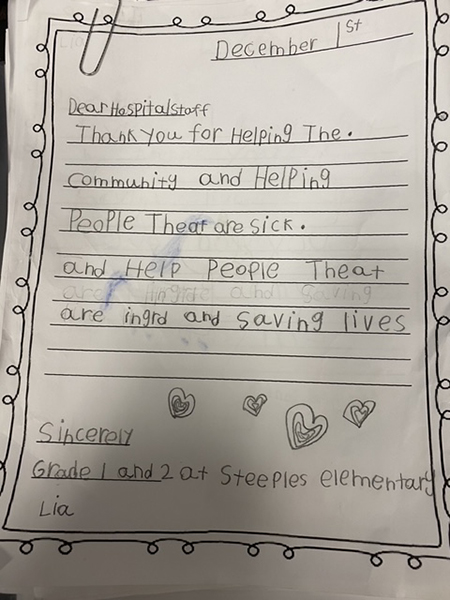 December 1st
Dear Hospital staff
Thank you for Helping The.
community and Helping
People Theat are sick.
and Help People Theat
are ingrd and saving
are ingrd and saving lives
Sincerely
Grade 1 and 2 at Steeples elementary
Lia